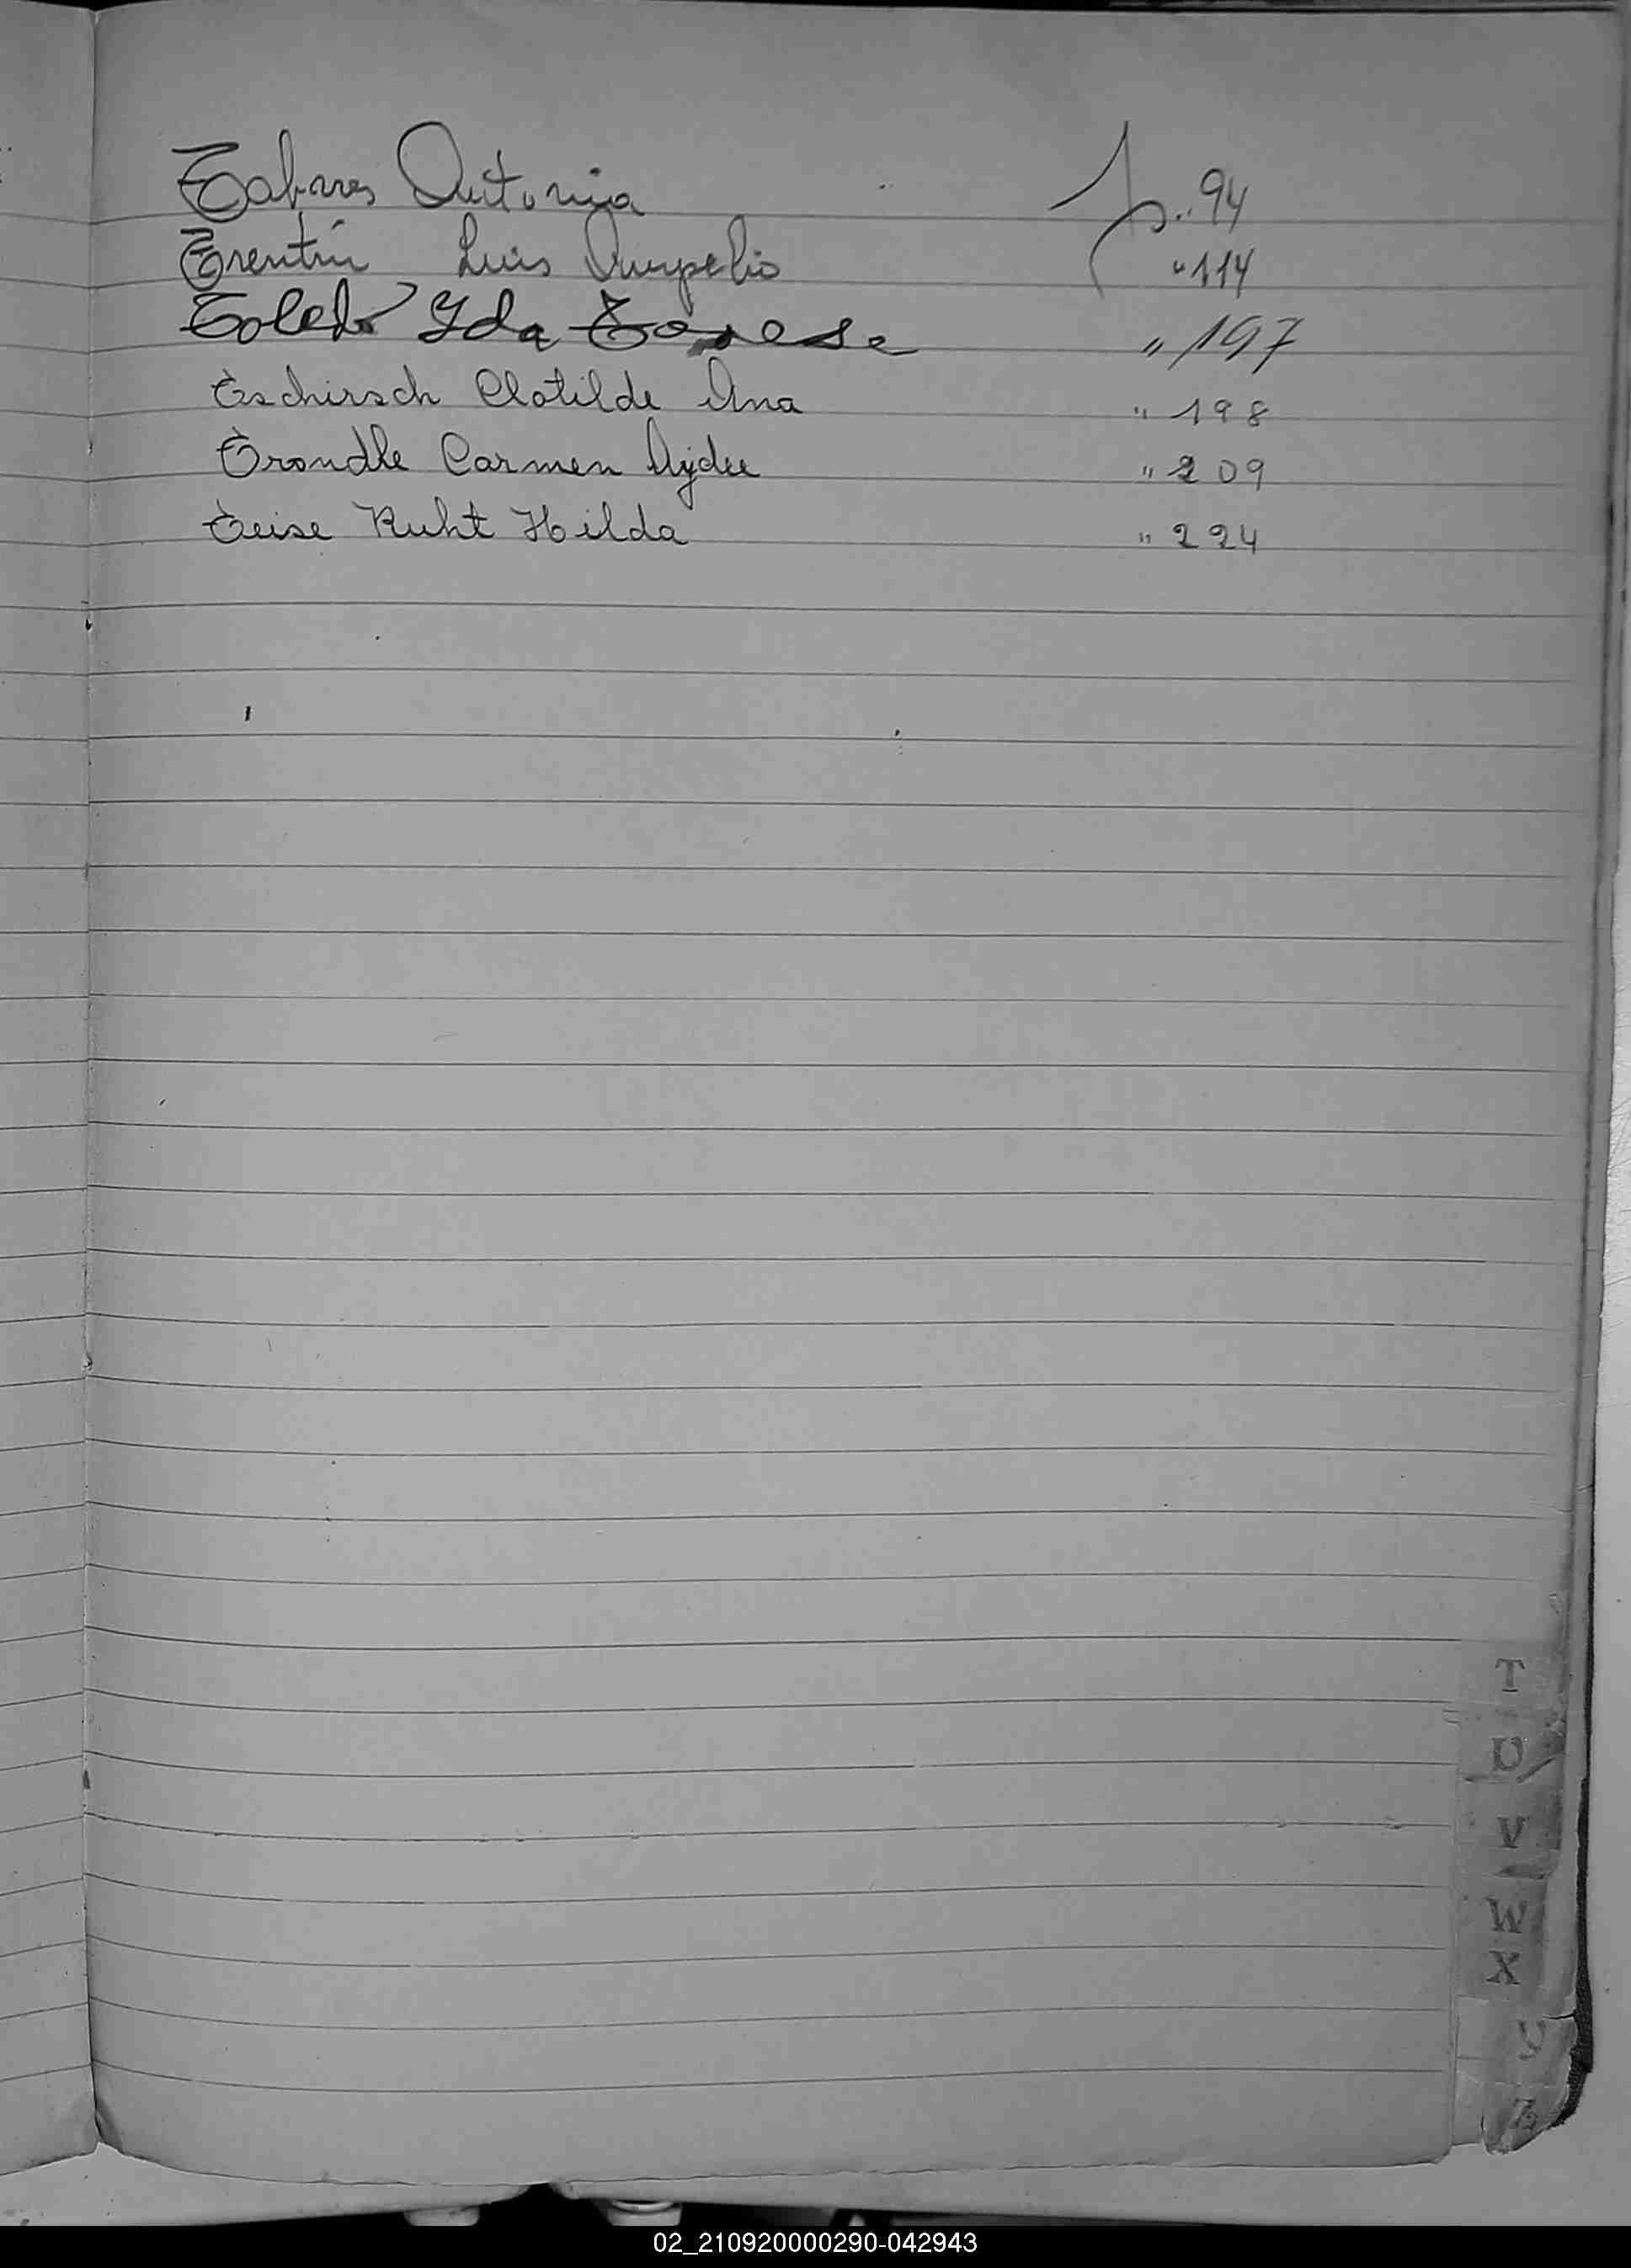 Tabares Antonia fo.. 94
Trentín Luis Aurelio " 114
Toledo Yda Teresa " 197
Tschirsch Clotilde Ana " 198
Trondle Carmen Aydee " 209
Teise Ruht Hilda " 224
T
U
V
W
X
Y
Z
02_210920000290-042943